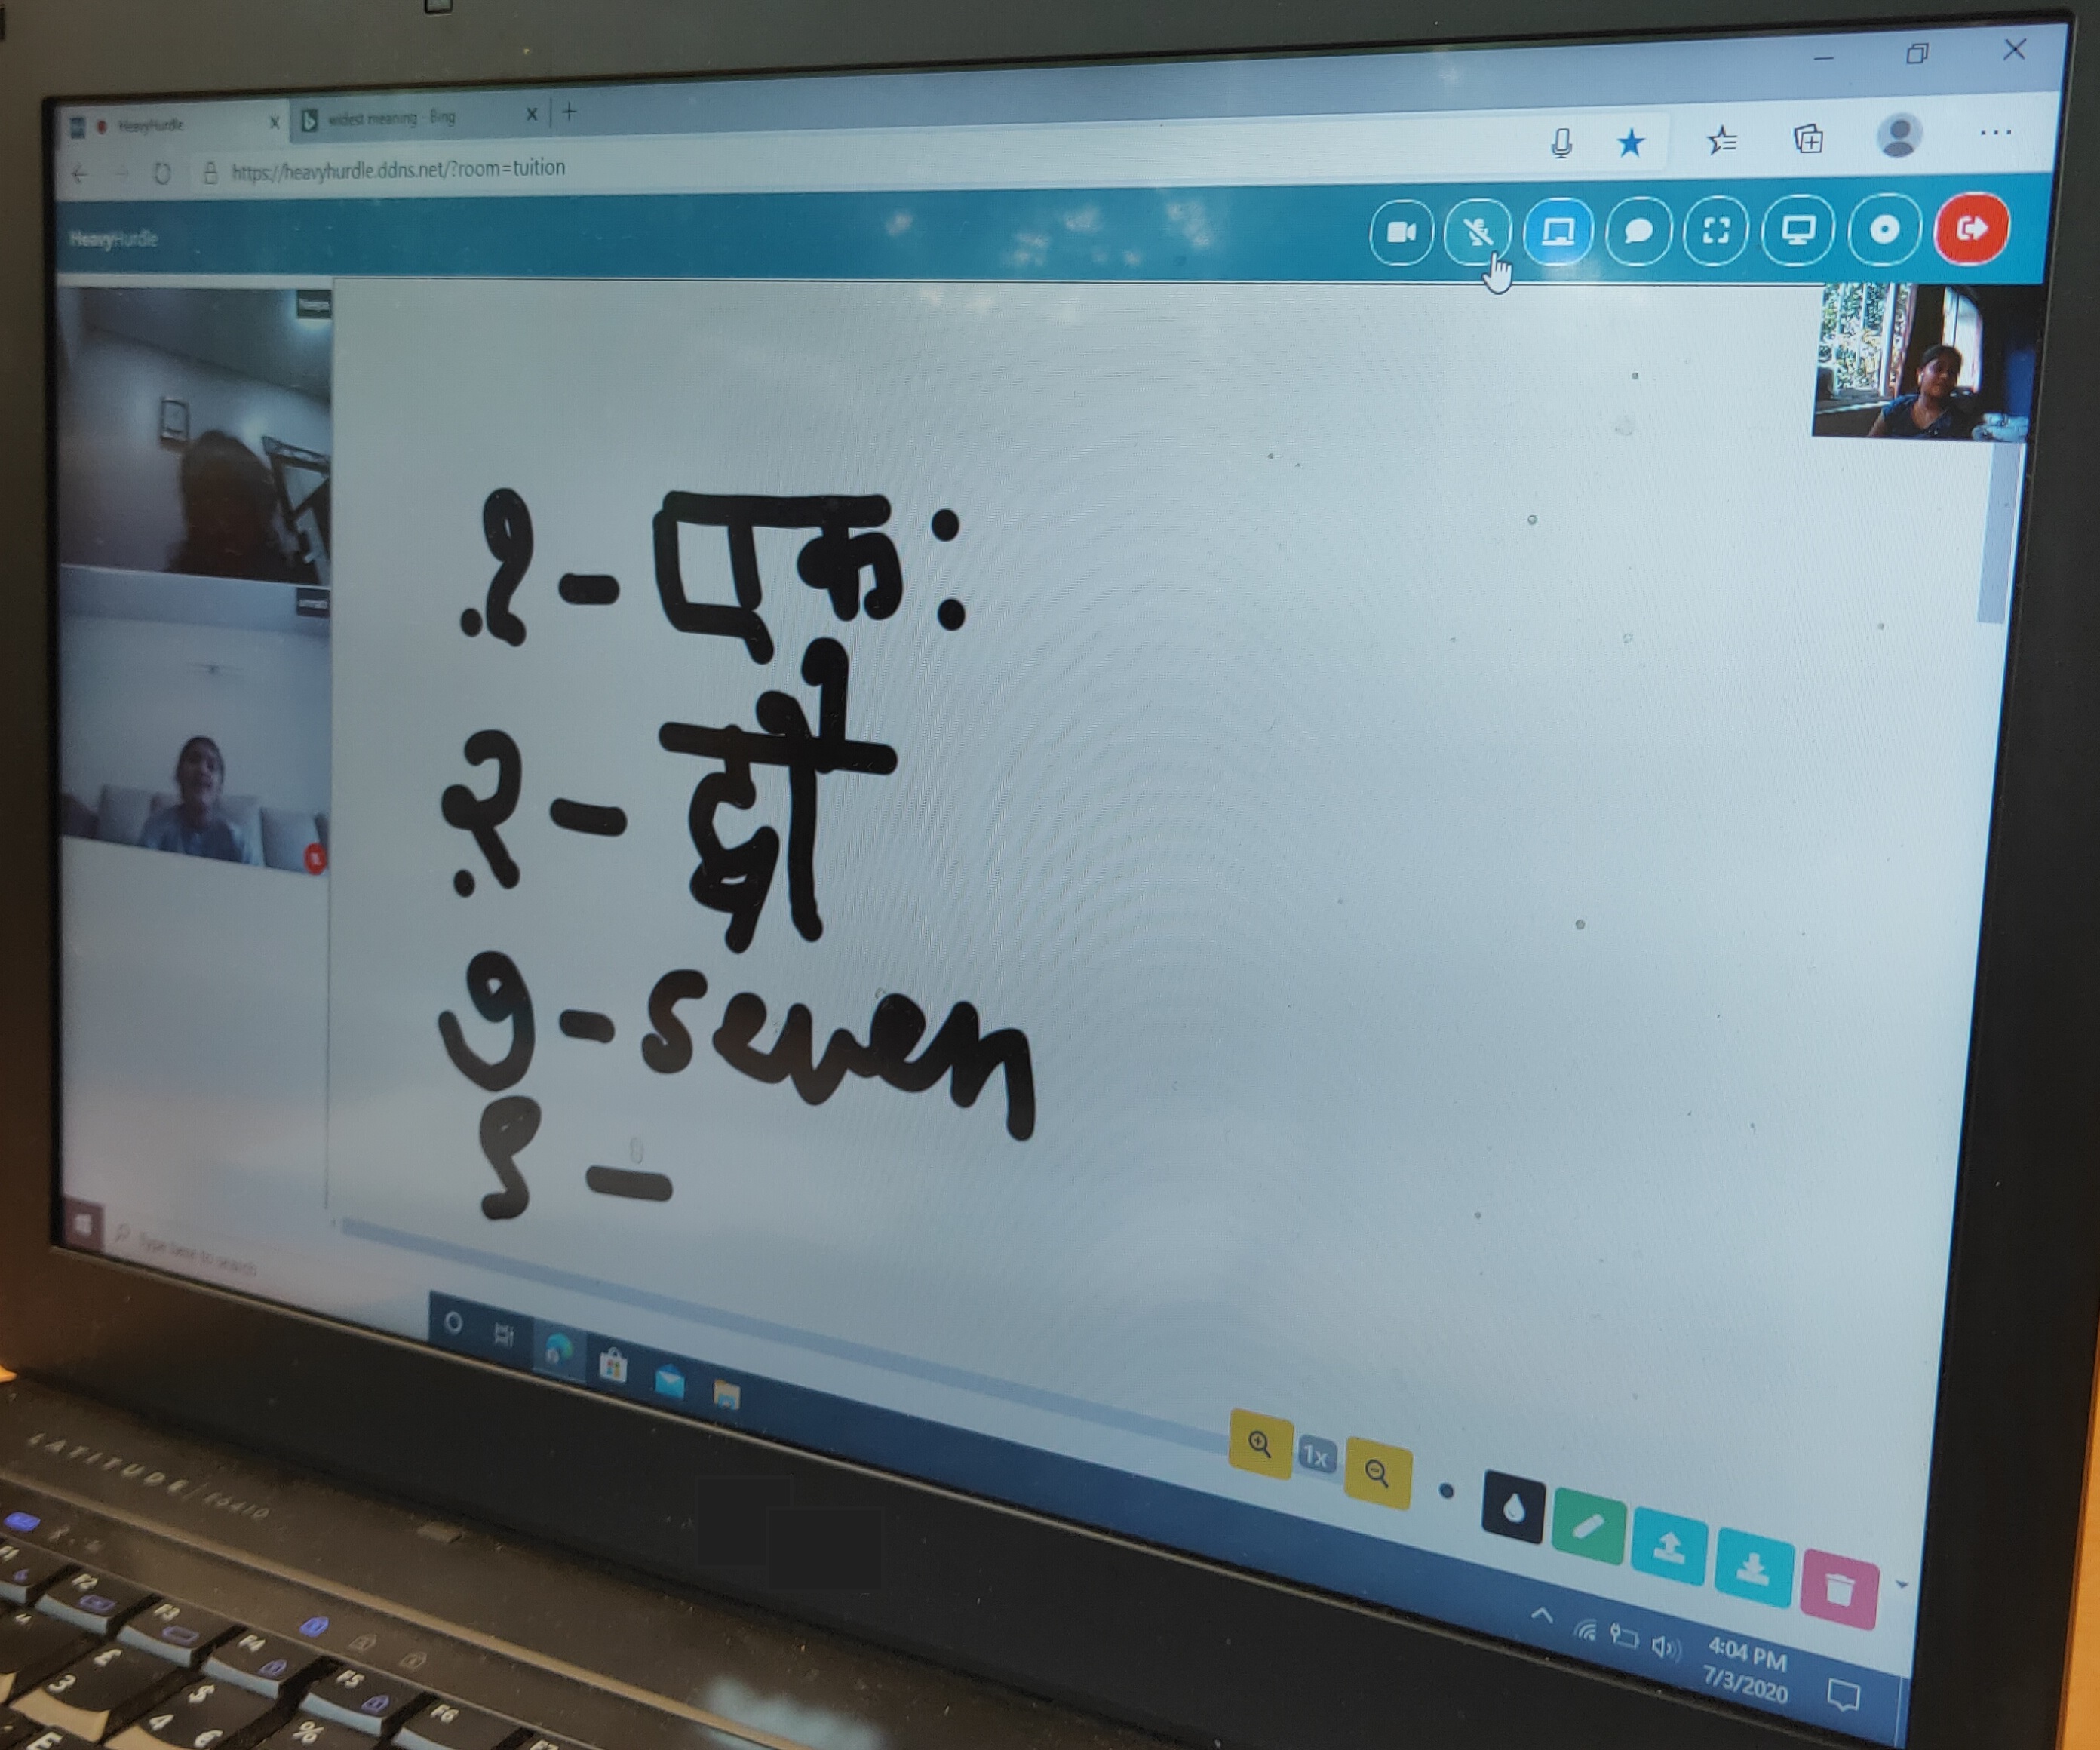 HeavyHurdle
widest meaning - Bing
https://heavyhurdle.ddns.net/?room=tuition
HeavyHurdle
.१ - एकः
.२ - द्वौ
७ - seven
९ -
Type here to search
1x
4:04 PM
7/3/2020
LATITUDE / E6410
F1
F2
F3
F4
F5
F6
F7
£
3
$
4 €
%
E